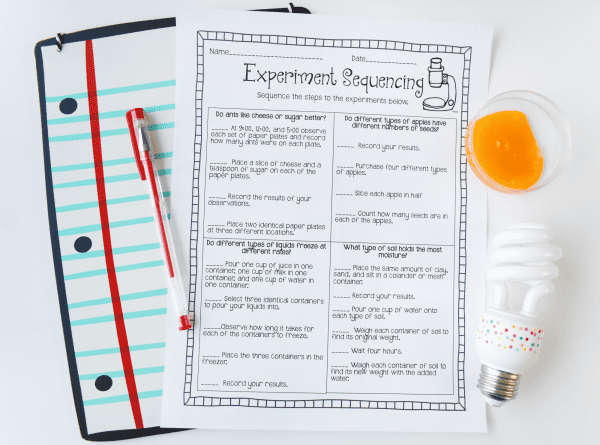 Name Date
Experiment Sequencing
Sequence the steps to the experiments below.
Do ants like cheese or sugar better?
_____ At 9:00, 12:00, and 5:00 observe
each set of paper plates and record
how many ants were on each plate.
_____ Place a slice of cheese and a
teaspoon of sugar on each of the
paper plates.
_____ Record the results of your
observations.
_____ Place two identical paper plates
at three different locations.
Do different types of apples have
different numbers of seeds?
_____ Record your results.
_____ Purchase four different types
of apples.
_____ Slice each apple in half
_____ Count how many seeds are in
each of the apples.
Do different types of liquids freeze at
different rates?
_____ Pour one cup of juice in one
container, one cup of milk in one
container, and one cup of water in
one container.
_____ Select three identical containers
to pour your liquids into.
_____Observe how long it takes for
each of the containers to freeze.
_____ Place the three containers in the
freezer.
_____ Record your results.
What type of soil holds the most
moisture?
_____ Place the same amount of clay,
sand, and silt in a colander or mesh
container.
_____ Record your results.
_____ Pour one cup of water onto
each type of soil.
_____ Weigh each container of soil to
find its original weight.
_____ Wait four hours.
_____ Weigh each container of soil to
find its new weight with the added
water.